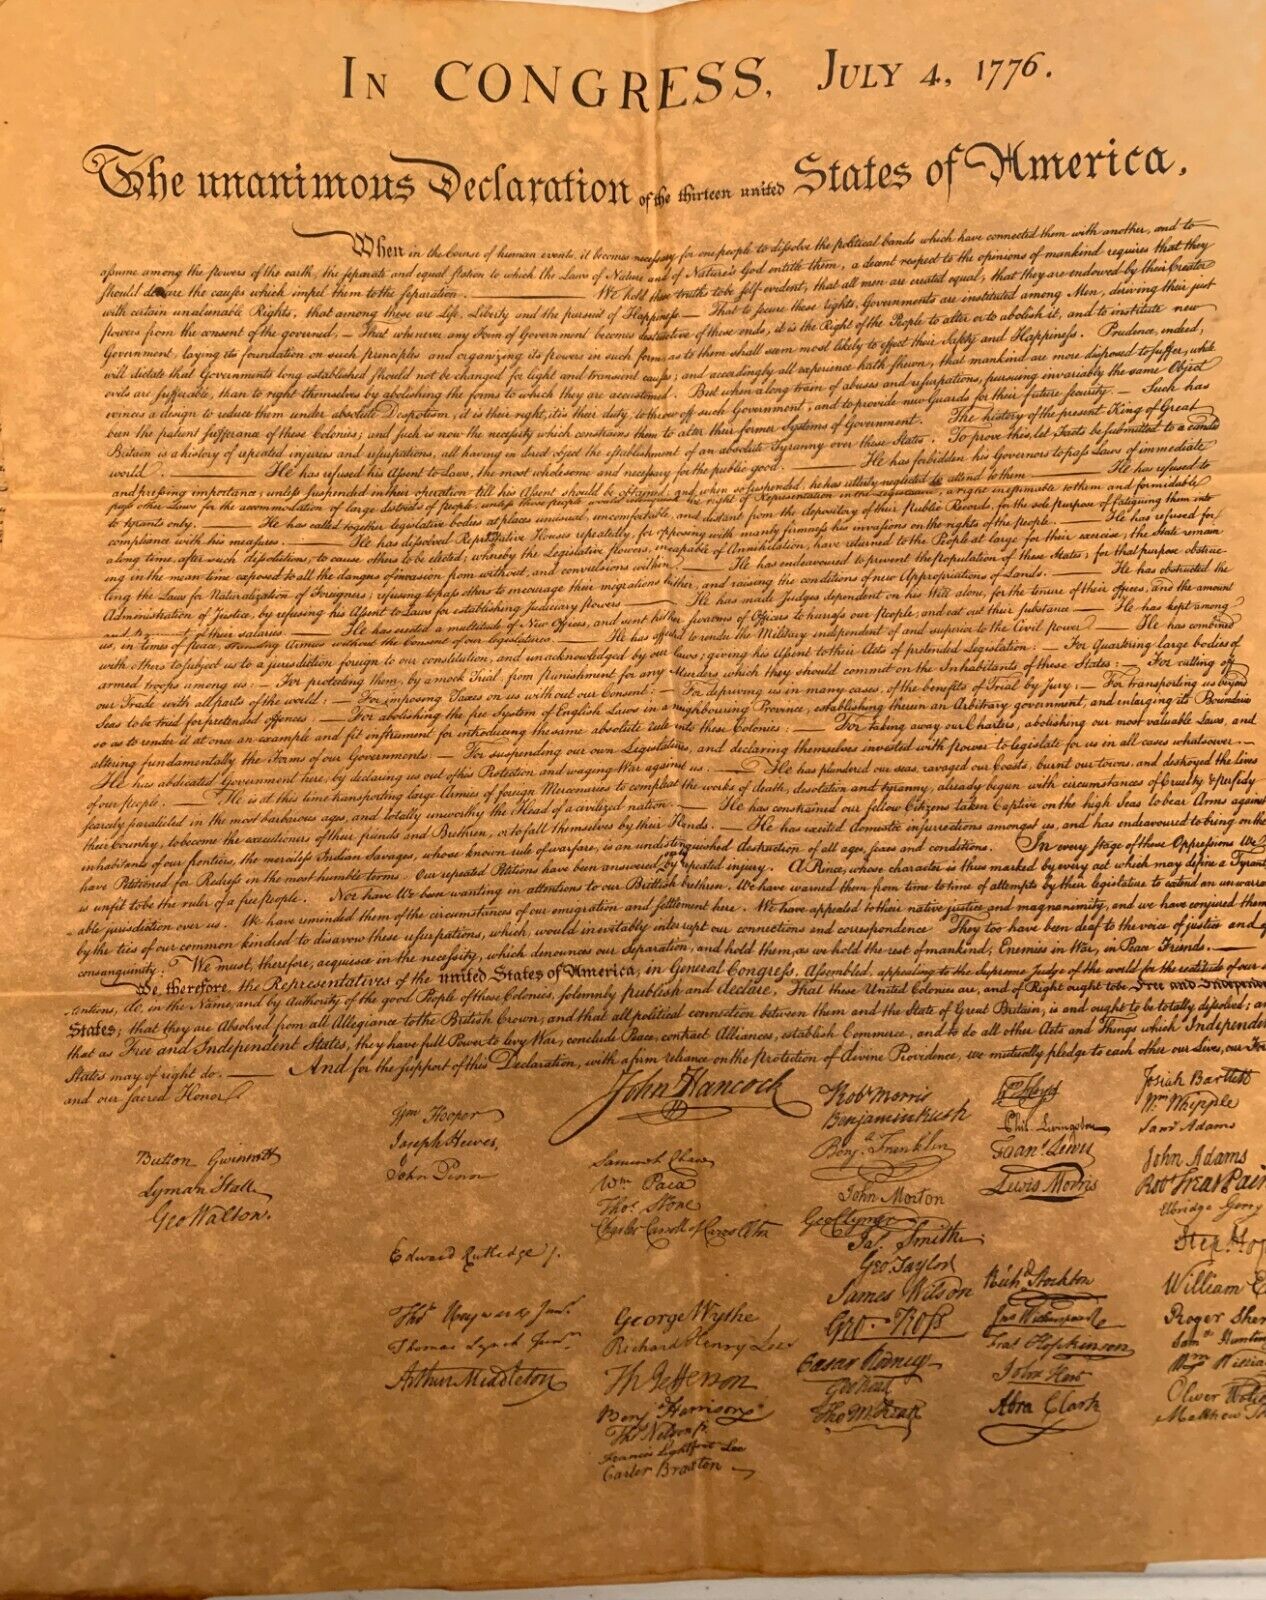 IN CONGRESS, JULY 4, 1776.
The unanimous Declaration of the thirteen united States of America.
When in the Course of human events, it becomes necessary for one people to dissolve the political bands which have connected them with another, and to
assume among the powers of the earth, the separate and equal station to which the Laws of Nature and of Nature's God entitle them, a decent respect to the opinions of mankind requires that they
should declare the causes which impel them to the separation. We hold these truths to be self-evident, that all men are created equal, that they are endowed by their Creator
with certain unalienable Rights, that among these are Life, Liberty and the pursuit of Happiness — That to secure these rights, Governments are instituted among Men, deriving their just
powers from the consent of the governed, — That whenever any Form of Government becomes destructive of these ends, it is the Right of the People to alter or to abolish it, and to institute new
Government, laying its foundation on such principles and organizing its powers in such form, as to them shall seem most likely to effect their Safety and Happiness. Prudence, indeed,
will dictate that Governments long established should not be changed for light and transient causes; and accordingly all experience hath shewn, that mankind are more disposed to suffer, while
evils are sufferable, than to right themselves by abolishing the forms to which they are accustomed. But when a long train of abuses and usurpations, pursuing invariably the same Object
evinces a design to reduce them under absolute Despotism, it is their right, it is their duty, to throw off such Government, and to provide new Guards for their future security. — Such has
been the patient sufferance of these Colonies; and such is now the necessity which constrains them to alter their former Systems of Government. The history of the present King of Great
Britain is a history of repeated injuries and usurpations, all having in direct object the establishment of an absolute Tyranny over these States. To prove this, let Facts be submitted to a candid
world. — He has refused his Assent to Laws, the most wholesome and necessary for the public good. — He has forbidden his Governors to pass Laws of immediate
and pressing importance, unless suspended in their operation till his Assent should be obtained, and when so suspended, he has utterly neglected to attend to them — He has refused to
pass other Laws for the accommodation of large districts of people, unless those people would the right of Representation in the Legislature, a right inestimable to them and formidable
to tyrants only. — He has called together legislative bodies at places unusual, uncomfortable, and distant from the depository of their Public Records, for the sole purpose of fatiguing them into
compliance with his measures. — He has dissolved Representative Houses repeatedly, for opposing with manly firmness his invasions on the rights of the people. — He has refused for
a long time, after such dissolutions, to cause others to be elected; whereby the Legislative powers, incapable of Annihilation, have returned to the People at large for their exercise; the State remain
ing in the mean time exposed to all the dangers of invasion from without, and convulsions within. — He has endeavoured to prevent the population of these States; for that purpose obstruc-
ting the Laws for Naturalization of Foreigners; refusing to pass others to encourage their migrations hither, and raising the conditions of new Appropriations of Lands. — He has obstructed the
Administration of Justice, by refusing his Assent to Laws for establishing Judiciary powers — He has made Judges dependent on his Will alone, for the tenure of their offices, and the amount
of their salaries. — He has erected a multitude of New Offices, and sent hither swarms of Officers to harrass our people, and eat out their substance — He has kept among
us, in times of peace, Standing Armies without the Consent of our legislatures. — He has affected to render the Military independent of and superior to the Civil power — He has combined
with others to subject us to a jurisdiction foreign to our constitution, and unacknowledged by our laws; giving his Assent to their Acts of pretended Legislation: — For Quartering large bodies of
armed troops among us: — For protecting them, by a mock Trial, from punishment for any Murders which they should commit on the Inhabitants of these States: — For cutting off
our Trade with all parts of the world: — For imposing Taxes on us without our Consent: — For depriving us in many cases, of the benefits of Trial by Jury: — For transporting us beyond
Seas to be tried for pretended offences: — For abolishing the free System of English Laws in a neighbouring Province, establishing therein an Arbitrary government, and enlarging its Boundaries
so as to render it at once an example and fit instrument for introducing the same absolute rule into these Colonies: — For taking away our Charters, abolishing our most valuable Laws, and
altering fundamentally the Forms of our Governments: — For suspending our own Legislatures, and declaring themselves invested with power to legislate for us in all cases whatsoever. —
He has abdicated Government here, by declaring us out of his Protection and waging War against us. — He has plundered our seas, ravaged our Coasts, burnt our towns, and destroyed the Lives
of our people. — He is at this time transporting large Armies of foreign Mercenaries to compleat the works of death, desolation and tyranny, already begun with circumstances of Cruelty & perfidy
scarcely paralleled in the most barbarous ages, and totally unworthy the Head of a civilized nation. — He has constrained our fellow Citizens taken Captive on the high Seas to bear Arms against
their Country, to become the executioners of their friends and Brethren, or to fall themselves by their Hands. — He has excited domestic insurrections amongst us, and has endeavoured to bring on the
inhabitants of our frontiers, the merciless Indian Savages, whose known rule of warfare, is an undistinguished destruction of all ages, sexes and conditions. In every stage of these Oppressions We
have Petitioned for Redress in the most humble terms: Our repeated Petitions have been answered only by repeated injury. A Prince, whose character is thus marked by every act which may define a Tyrant,
is unfit to be the ruler of a free people. Nor have We been wanting in attentions to our Brittish brethren. We have warned them from time to time of attempts by their legislature to extend an unwarrant
able jurisdiction over us. We have reminded them of the circumstances of our emigration and settlement here. We have appealed to their native justice and magnanimity, and we have conjured them
by the ties of our common kindred to disavow these usurpations, which, would inevitably interrupt our connections and correspondence They too have been deaf to the voice of justice and of
consanguinity. We must, therefore, acquiesce in the necessity, which denounces our Separation, and hold them, as we hold the rest of mankind, Enemies in War, in Peace Friends. —
We, therefore, the Representatives of the united States of America, in General Congress, Assembled, appealing to the Supreme Judge of the world for the rectitude of our
tentions, do, in the Name, and by Authority of the good People of these Colonies, solemnly publish and declare, That these United Colonies are, and of Right ought to be Free and Independent
States; that they are Absolved from all Allegiance to the British Crown, and that all political connection between them and the State of Great Britain, is and ought to be totally dissolved; and
that as Free and Independent States, they have full Power to levy War, conclude Peace, contract Alliances, establish Commerce, and to do all other Acts and Things which Independent
States may of right do. — And for the support of this Declaration, with a firm reliance on the protection of divine Providence, we mutually pledge to each other our Lives, our For
and our sacred Honor.
John Hancock
Button Gwinnett
Lyman Hall
Geo Walton.
Wm Hooper
Joseph Hewes,
John Penn
Edward Rutledge
Thos Heyward Junr.
Thomas Lynch Junr.
Arthur Middleton
Samuel Chase
Wm. Paca
Thos. Stone
Charles Carroll of Carrollton
George Wythe
Richard Henry Lee
Th Jefferson
Benj Harrison
Thos Nelson jr.
Francis Lightfoot Lee
Carter Braxton
Robt Morris
Benjamin Rush
Benja. Franklin
John Morton
Geo Clymer
Jas. Smith
Geo. Taylor
James Wilson
Geo. Ross
Caesar Rodney
Geo Read
Tho M:Kean
Phil. Livingston
Frans. Lewis
Lewis Morris
Richd. Stockton
Jno Witherspoon
Fras. Hopkinson
John Hart
Abra Clark
Josiah Bartlett
Wm. Whipple
Saml Adams
John Adams
Robt Treat Pain
Elbridge Gerry
Step. Hop
William E
Roger Sher
Sam Hunting
Wm. William
Oliver Wol
Matthew Th